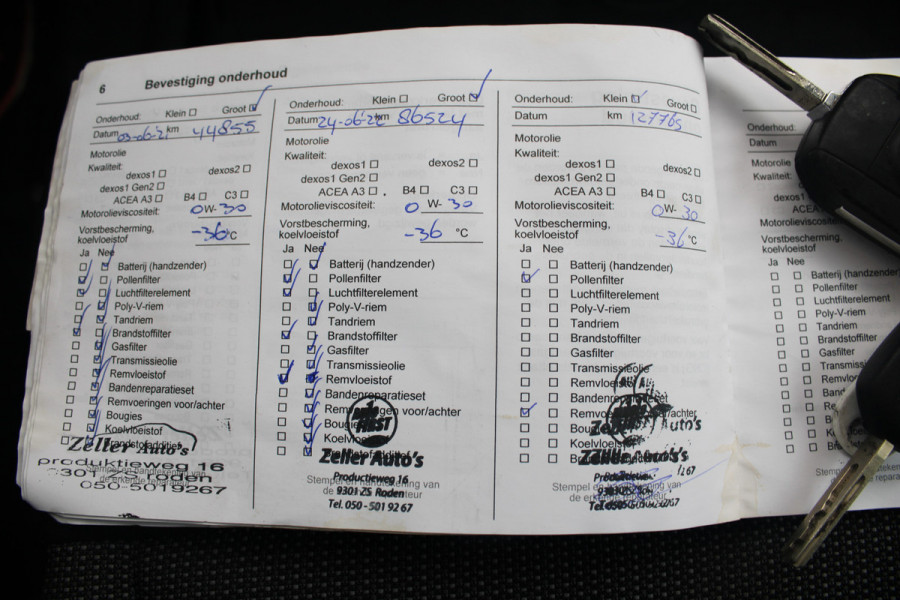 6 Bevestiging onderhoud
Onderhoud: Klein Groot
Datum 03-06-21 km 44855
Motorolie
Kwaliteit:
dexos1 dexos2
dexos1 Gen2
ACEA A3 B4 C3
Motorolieviscositeit: 0W-30
Vorstbescherming,
koelvloeistof -36°C
Ja Nee
Batterij (handzender)
Pollenfilter
Luchtfilterelement
Poly-V-riem
Tandriem
Brandstoffilter
Gasfilter
Transmissieolie
Remvloeistof
Bandenreparatieset
Remvoeringen voor/achter
Bougies
Koelvloeistof
Brandstofadditief
Zeller Auto's
produktieweg 16
Stempel en handtekening van
de erkende reparateur
050-5019267
Onderhoud: Klein Groot
Datum 24-06-22 km 86524
Motorolie
Kwaliteit:
dexos1 dexos2
dexos1 Gen2
ACEA A3 B4 C3
Motorolieviscositeit: 0W-30
Vorstbescherming,
koelvloeistof -36 °C
Ja Nee
Batterij (handzender)
Pollenfilter
Luchtfilterelement
Poly-V-riem
Tandriem
Brandstoffilter
Gasfilter
Transmissieolie
Remvloeistof
Bandenreparatieset
Remvoeringen voor/achter
Bougies
Koelvloeistof
Zeller Auto's
Produktieweg 16
9301 ZS Roden
Tel. 050 - 501 92 67
Onderhoud: Klein Groot
Datum km 127765
Motorolie
Kwaliteit:
dexos1 dexos2
dexos1 Gen2
ACEA A3 B4 C3
Motorolieviscositeit: 0W-30
Vorstbescherming,
koelvloeistof -36°C
Ja Nee
Batterij (handzender)
Pollenfilter
Luchtfilterelement
Poly-V-riem
Tandriem
Brandstoffilter
Gasfilter
Transmissieolie
Remvloeistof
Bandenreparatieset
Koelvloeistof
Zeller Auto's
Onderhoud:
Datum
Motorolie
Kwaliteit:
Vorstbescherming,
koelvloeistof
Ja Nee
Batterij (handzender)
Pollenfilter
Luchtfilterelement
Poly-V-riem
Tandriem
Brandstoffilter
Gasfilter